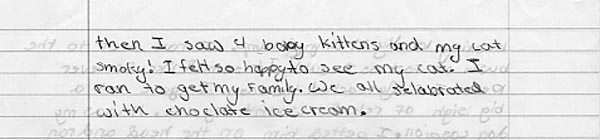 then I saw 4 baby kittens and my cat
smoky! I felt so happy to see my cat. I
ran to get my family. We all selabrated
with choclate ice cream.